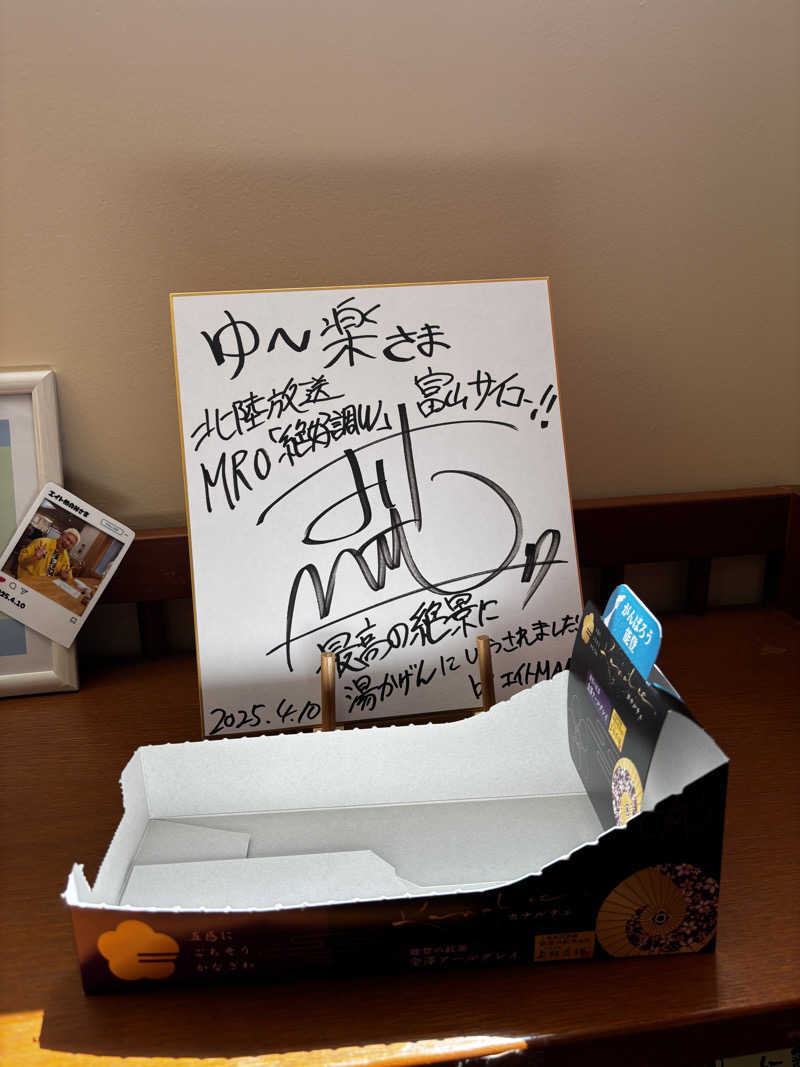 ゆ〜楽さま
北陸放送
MRO「絶好調W」
富山サイコー!!
最高の絶景に
湯かげんにいやされました!
2025.4.10
by エイトMAN
25.4.10
がんばろう
能登
五感に
ごちそう
かなざわ
カナルチェ
能登の紅茶
金澤アールグレイ